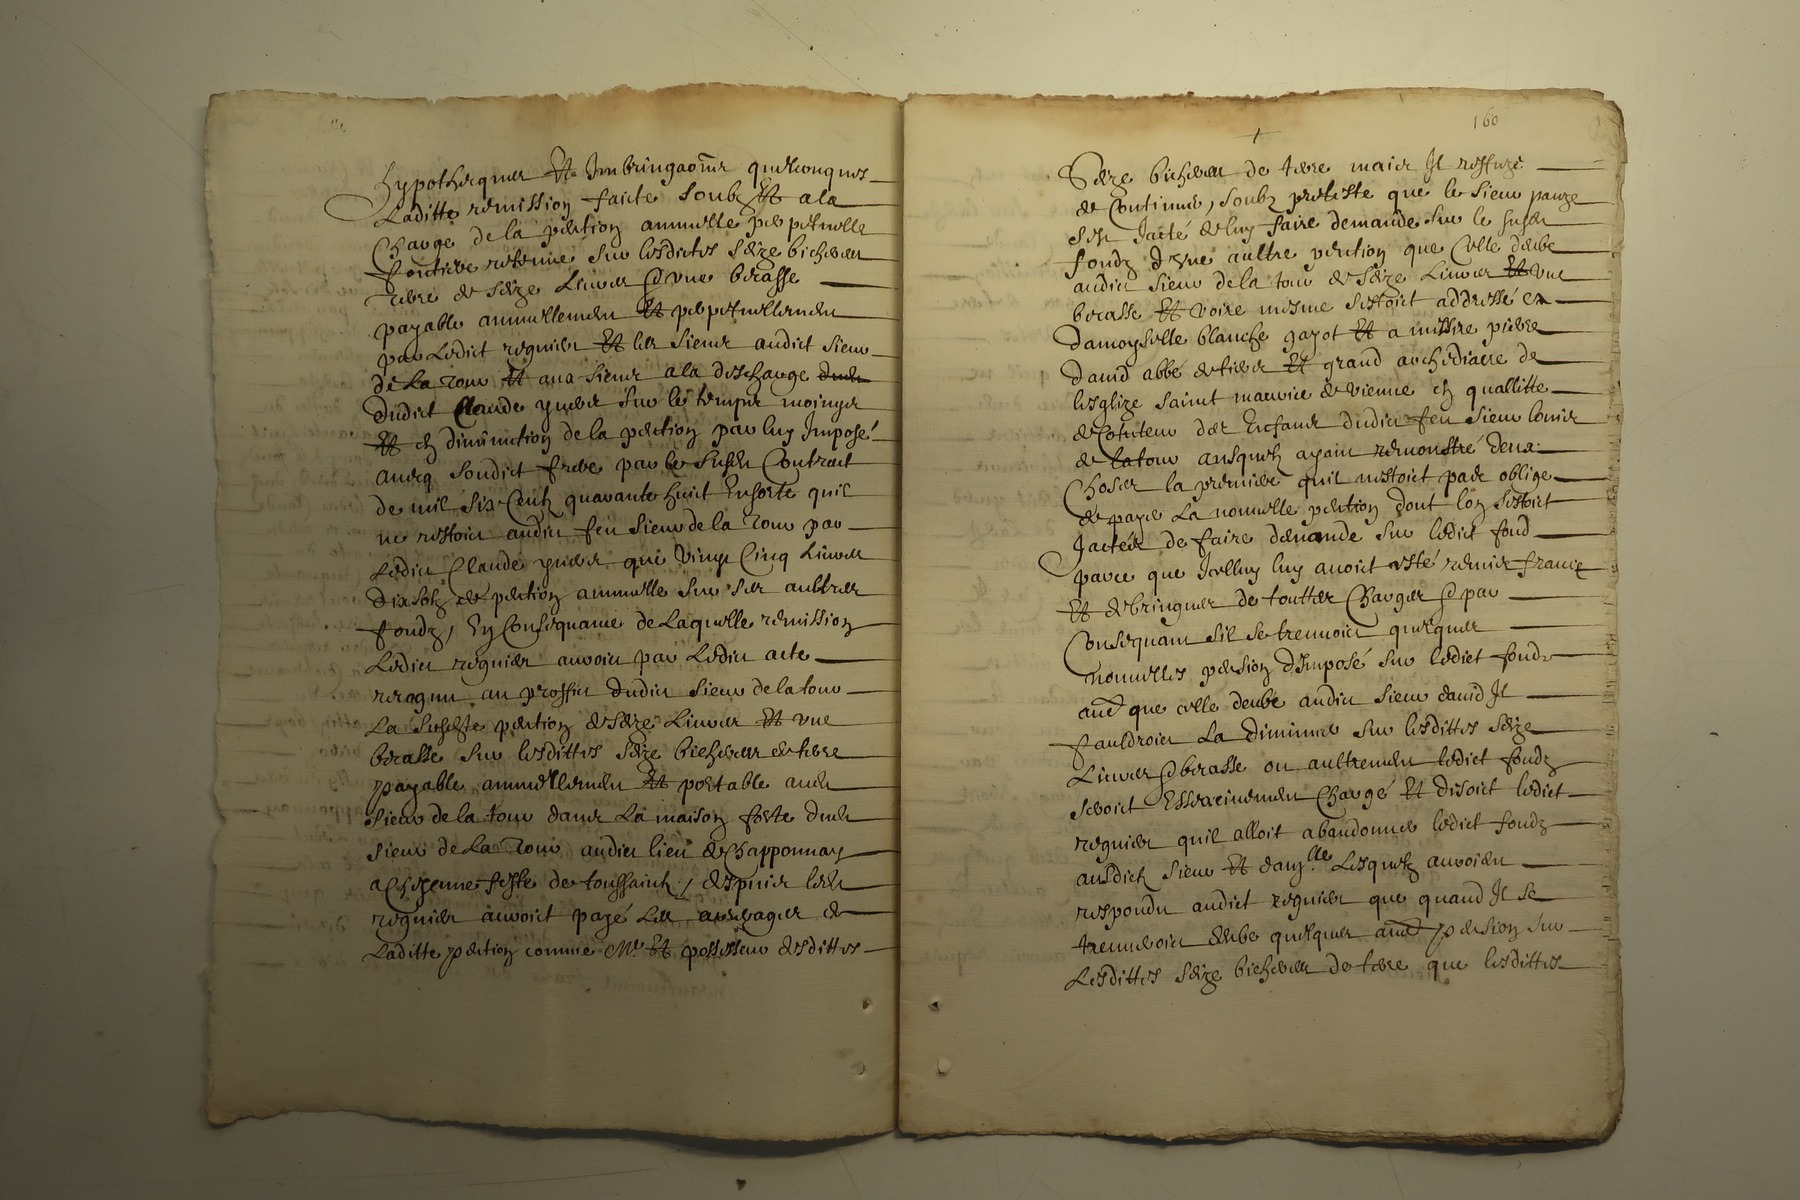 hypothecques Et Imbringaons quelconques
Laditte remission faicte soubz Et a la
Charge de la pention annuelle perpetuelle
fontiere retenue sur lesdittes seize bicherees
terre de seize Livres & une berasse
payable annuellement Et perpetuellement
par Ledict regnier Et les siens audict sieur
de La tour Et aux siens a la descharge
dudict Claude yuer sur le temps
Et en diminution de la pention par luy Imposé
avecq sondict frere par le susdt Contract
de mil six Centz quarante huict Ensorte quil
ne restoict audict feu sieur de la tour par
Ledict Claude que vingt Cinq Livres
dix solz de pention annuelle sur ses aultres
fondz, En Consequance de Laquelle remission
Ledict regnier auroict par Ledict acte
recognu au proffict dudict sieur de la tour
La susditte pention de seize Livres Et une
berasse sur lesdittes seize bicherees de terre
payable annuellement Et portable audt
sieur de la tour dans La maison forte dudt
sieur de La tour audict lieu de Chapponnay
a Chascune feste de toussainctz, despuis ledt
regnier auroict payé Les arrerages de
Laditte pention comme Mre Et possesseur desdittes
160
Seize bicherees de terre mais Il reffuze
de Continuer, soubz pretexte que le sieur
sest Jacté de luy faire demande sur le susdt
fondz dune aultre pention que Celle deube
audict sieur de la tour de seize Livres Et une
berasse Et voire mesme sestoict addressé a
damoyselle blanche gayot Et a messire pierre
david abbé de Et grand archediacre de
lesglize sainct maurice de vienne en quallitte
de Cotuteur des Enfans dudict feu sieur louis
de la tour ausquelz ayant remonstré deux
Choses la premiere quil nestoict pas oblige
de payer La nouvelle pention dont lon sestoict
Jacté de faire demande sur ledict fond
parce que Icelluy luy avoict esté remis franc
Et de bringues de touttes Charges & par
Consequant sil se treuvoict quelques
nouvelles pension dImposé sur ledict fondz
aue que celle deube audict sieur david Il
fauldroict La diminuer sur lesdittes seize
Livres & berasse ou aultrement ledict fondz
seroict Excessivement Chargé Et disoict ledict
regnier quil alloit abandonner ledict fondz
ausdictz sieur Et damlle Lesquelz auroient
respondu audict regnier que quand Il se
treuveroict deube quelques pension sur
Lesdittes seize bicherees de terre que lesdittes